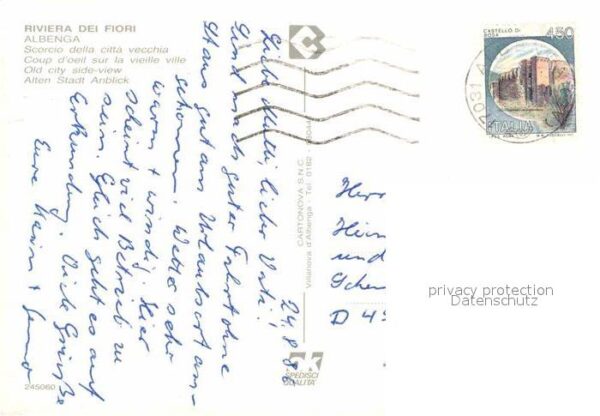 RIVIERA DEI FIORI
ALBENGA
Scorcio della città vecchia
Coup d'oeil sur la vieille ville
Old city side-view
Alten Stadt Anblick
24.8.86
Liebe Mutti, lieber Vati!
Sind nach guter Fahrt ohne
Staus gut am Urlaubsort an-
gekommen. Wetter sehr
warm + windig. Hier
scheint viel Betrieb zu
sein. Gleich geht es auf
Erkundung. Viele Grüße
Eure
CARTONOVA S.N.C.
Villanova d'Albenga - Tel. 0182
SPEDISCI
QUALITA'
245060
CASTELLO DI
ROSA
450
ITALIA
Herr
Hein
und
Schen
D 45
privacy protection
Datenschutz